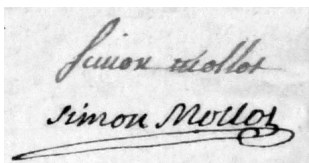 Simon mollos
Simon Mollos